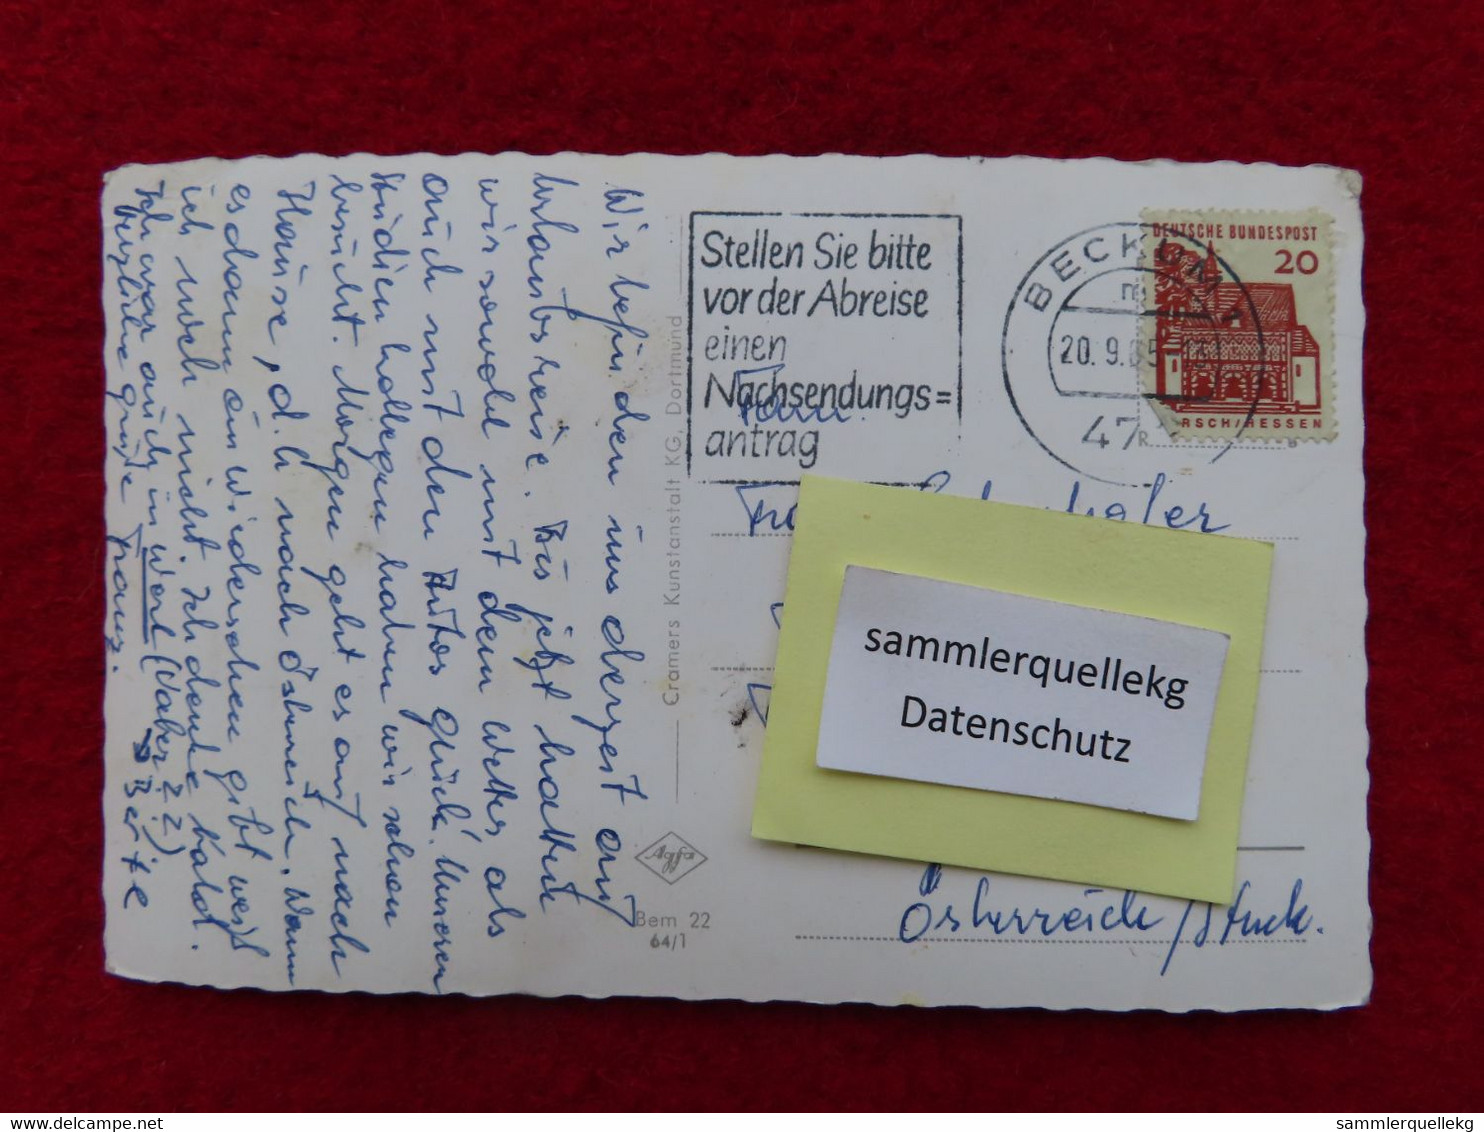 Wir befinden uns derzeit auf
Urlaubsreise. Bis jetzt hatten
wir sowohl mit dem Wetter als
auch mit den Autos Glück. Unseren
Studienkollegen haben wir schon
besucht. Morgen geht es auf nach
Hause, d.h nach Österreich. Wann
es dann ein Wiedersehen gibt weiß
ich noch nicht. Ich denke bald.
Ich war auch in Werl (Pater
herzliche Grüße Franz.
Cramers Kunstanstalt KG, Dortmund
Agfa
Bem 22
64/1
Stellen Sie bitte
vor der Abreise
einen
Nachsendungs=
antrag
BECKUM 1
m
20.9.65
47
DEUTSCHE BUNDESPOST
20
RSCH/HESSEN
Fam.
sammlerquellekg
Datenschutz
Österreich/Stmk.
delcampe.net
sammlerquellekg